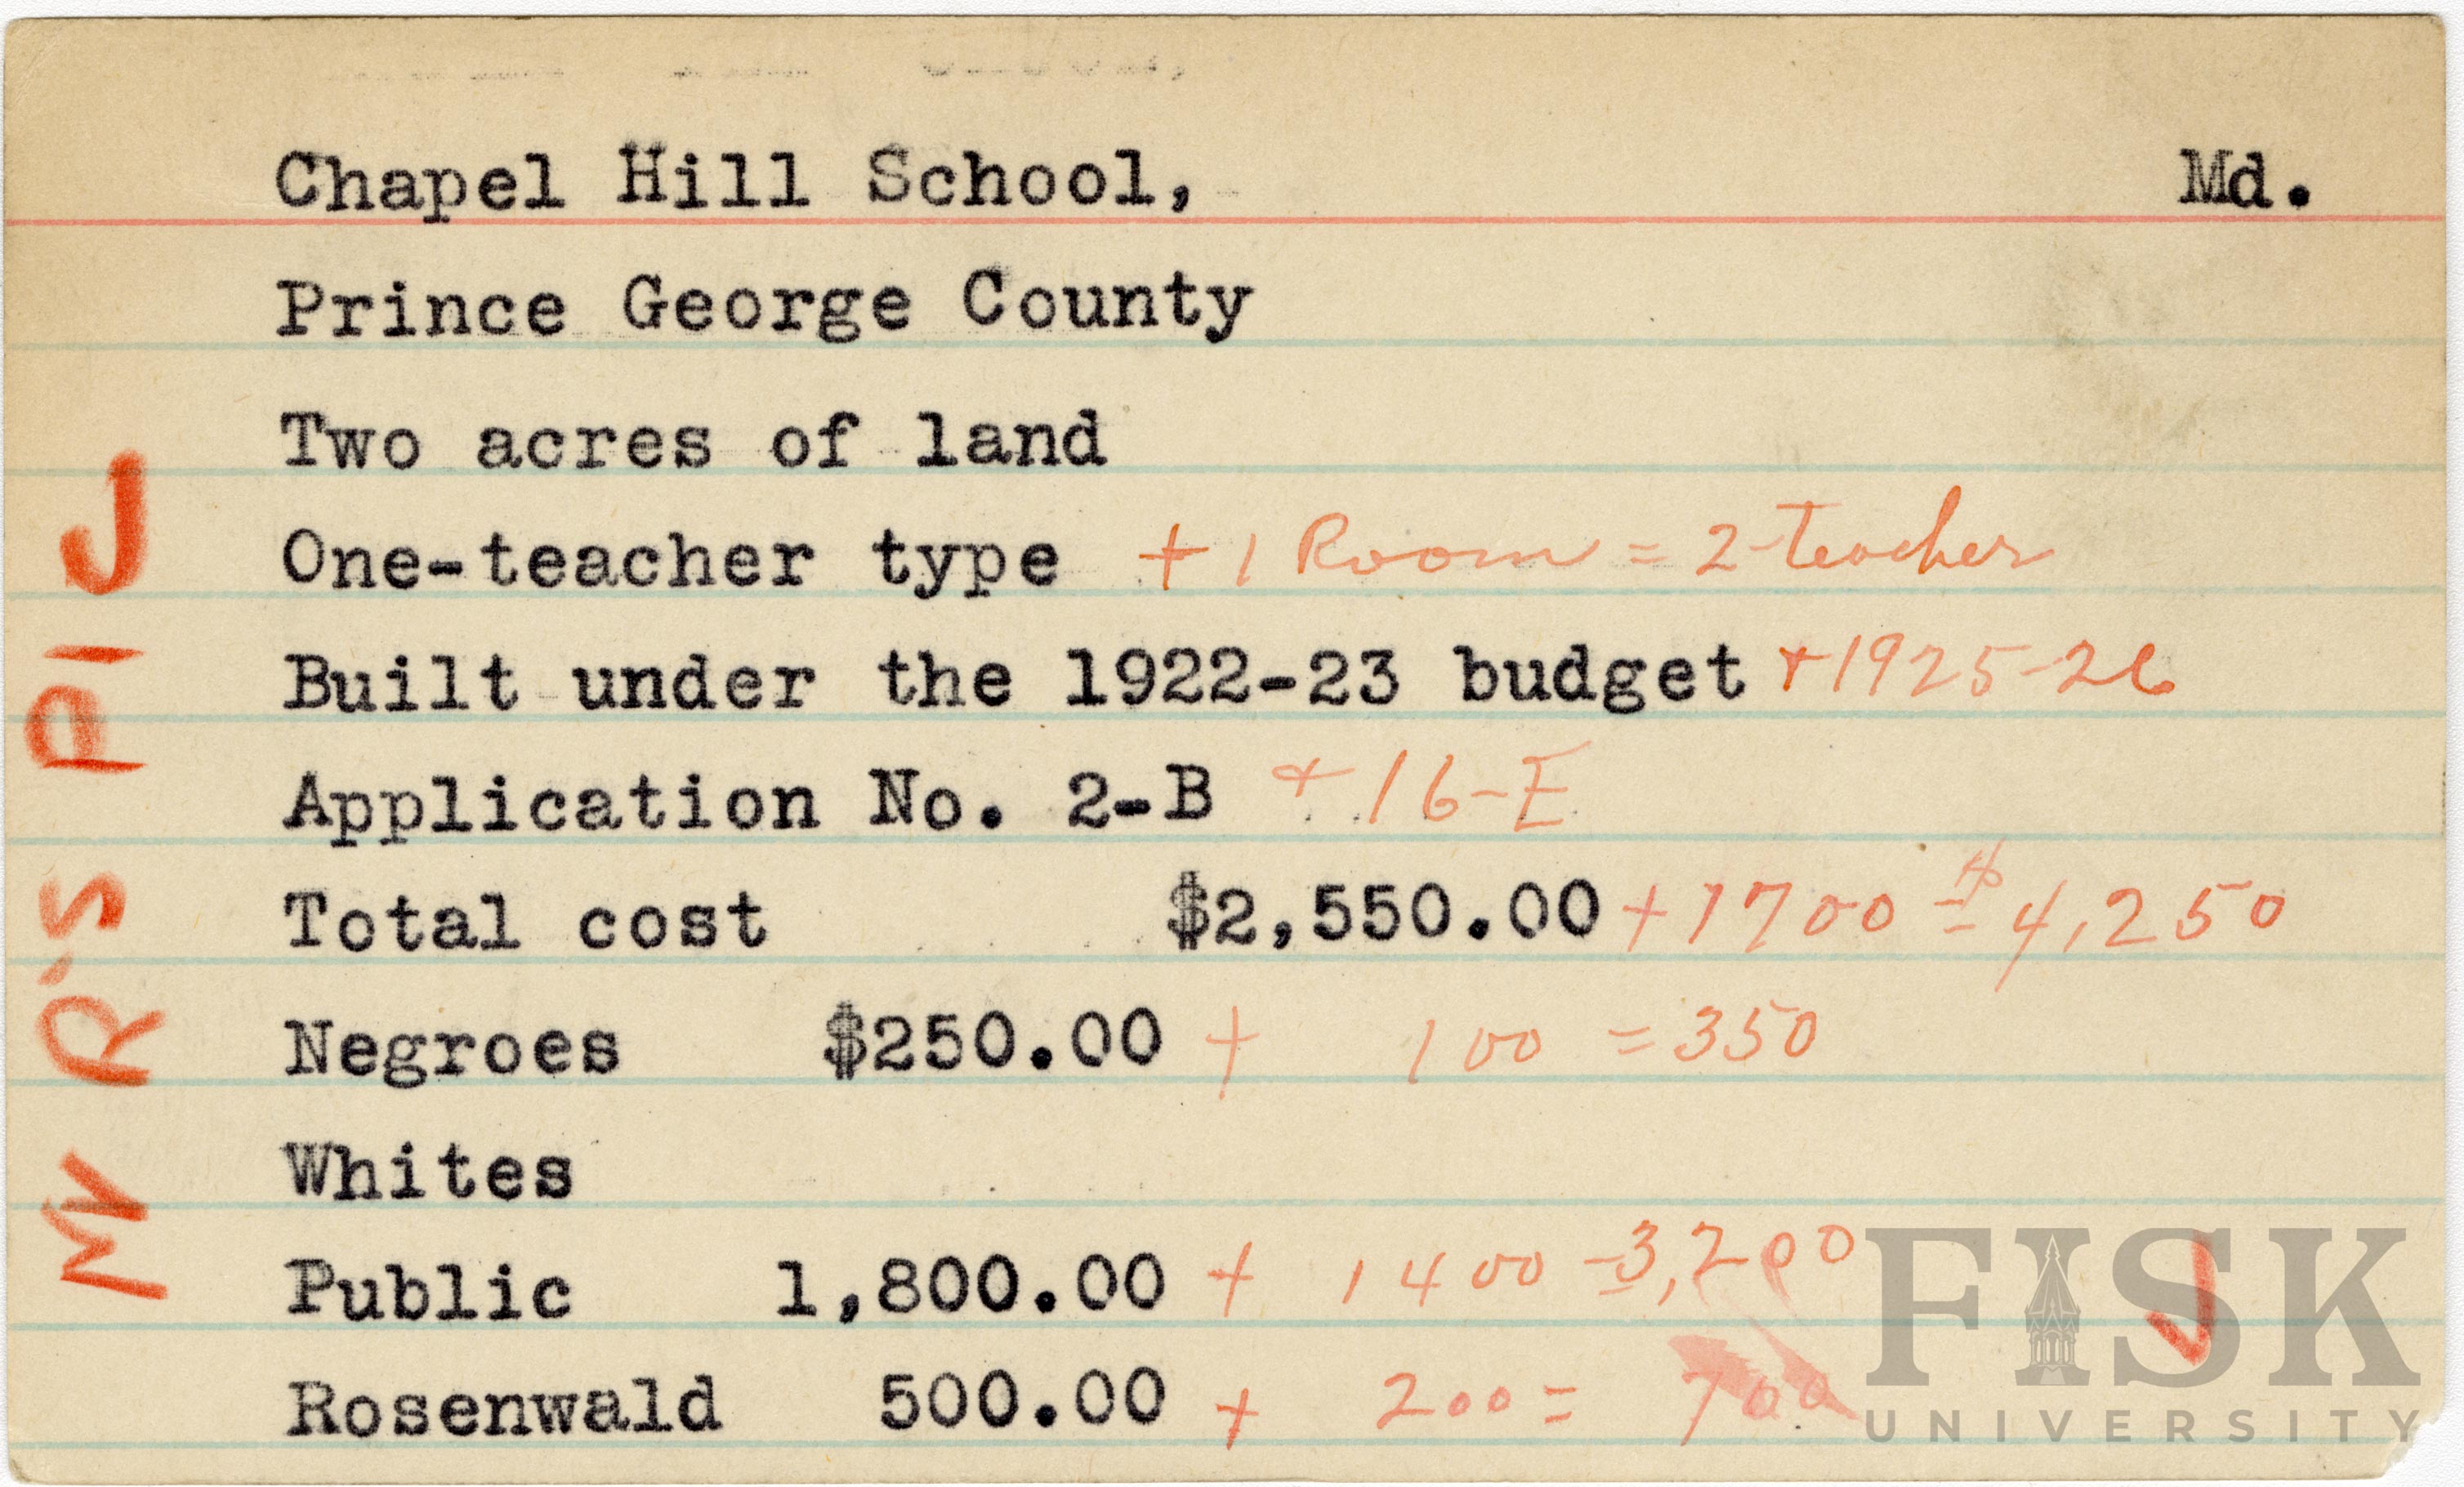 Chapel Hill School, Md.
Prince George County
Two acres of land
One-teacher type + 1 Room = 2-Teacher
Built under the 1922-23 budget + 1925-26
Application No. 2-B + 16-E
Total cost $2,550.00 + 1700 = $4,250
Negroes $250.00 + 100 = 350
Whites
Public 1,800.00 + 1400 = 3,200
Rosenwald 500.00 + 200 = 700
FISK
UNIVERSITY